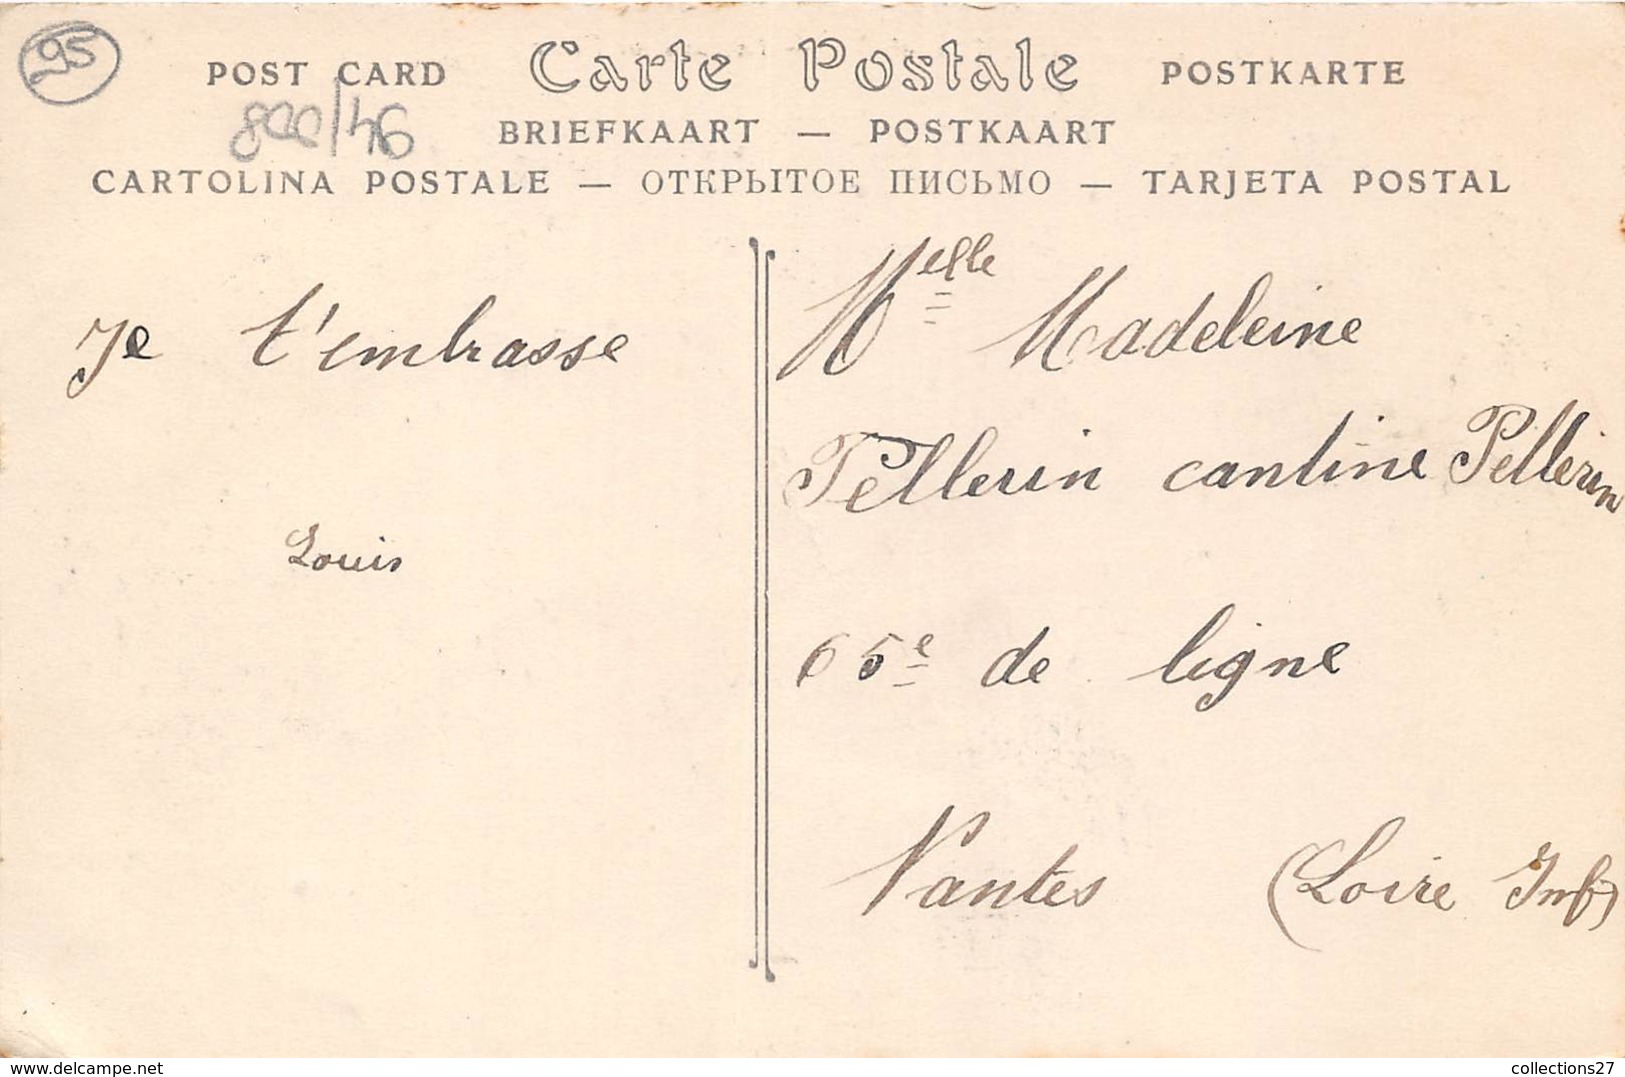 95
POST CARD Carte Postale POSTKARTE
800/46
BRIEFKAART — POSTKAART
CARTOLINA POSTALE — ОТКРЫТОЕ ПИСЬМО — TARJETA POSTAL
Je t'embrasse
Louis
Melle Madeleine
Pellerin cantine Pellerin
65e de ligne
Nantes (Loire Inf)
www.delcampe.net
collections27